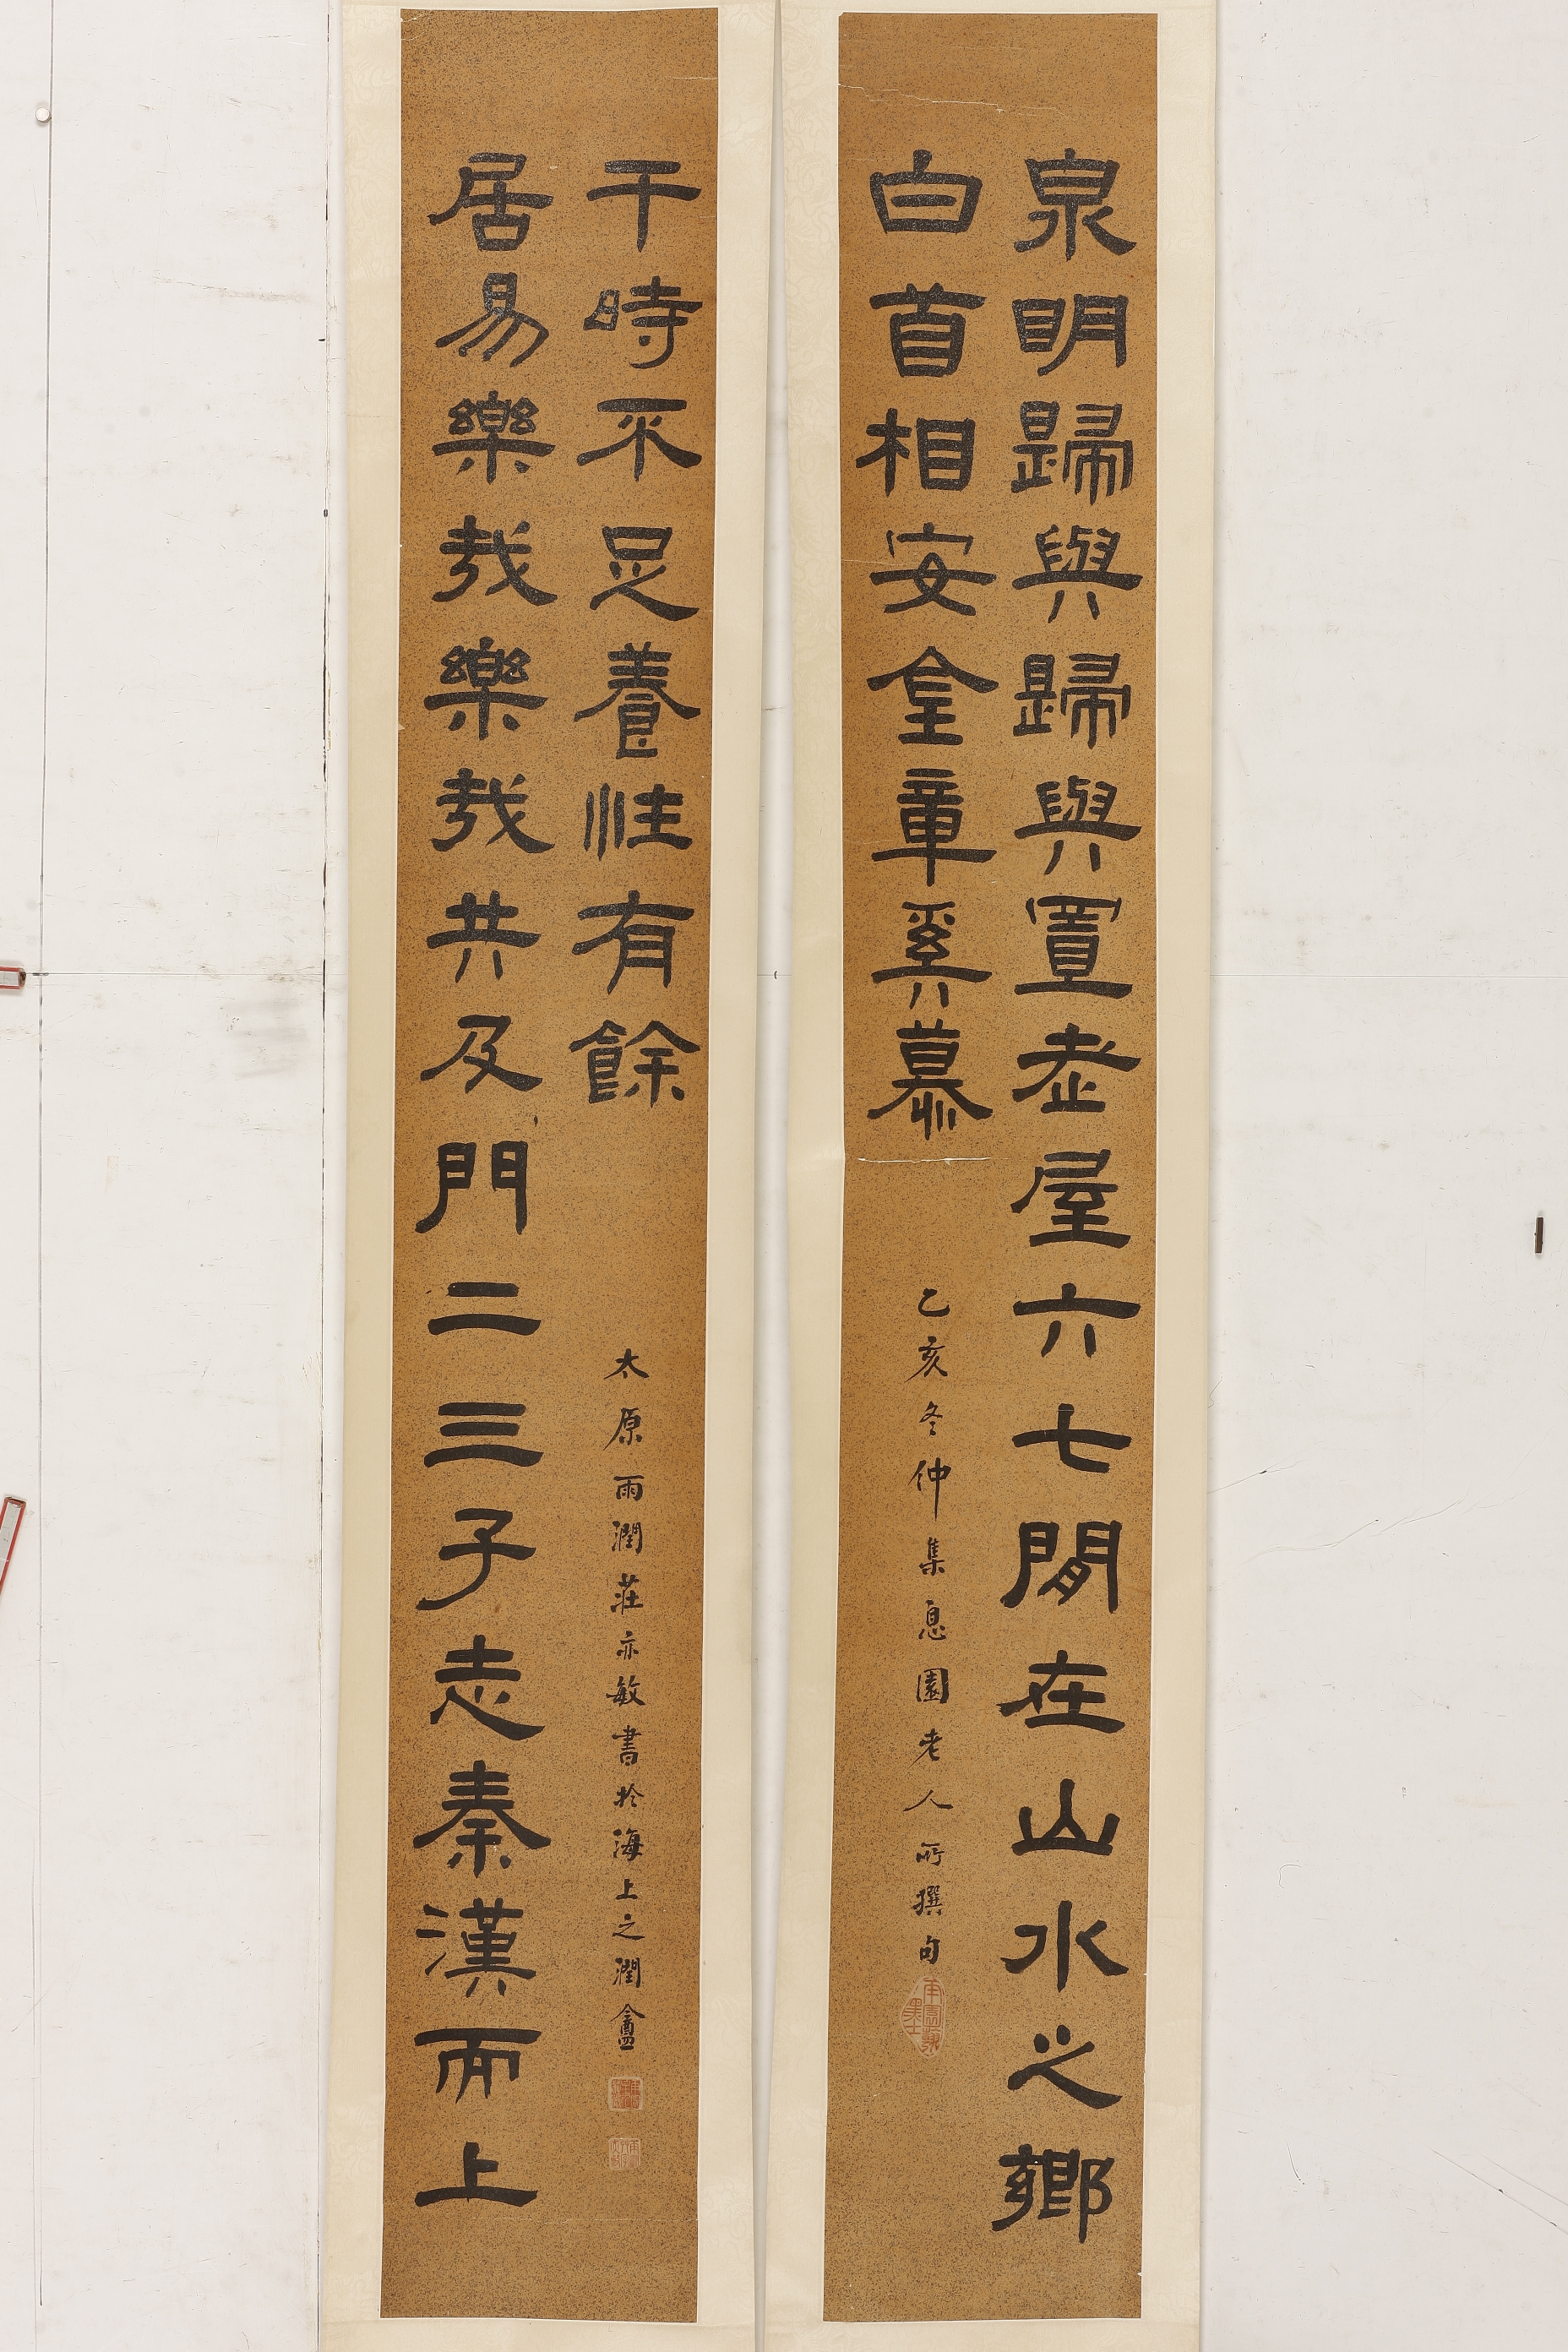 泉明歸與歸與置老屋六七間在山水之鄉
白首相安金章奚慕
乙亥冬仲集息園老人所撰句
居易樂哉樂哉共及門二三子志秦漢而上
干時不足養性有餘
太原雨潤莊亦敏書於海上之潤盦